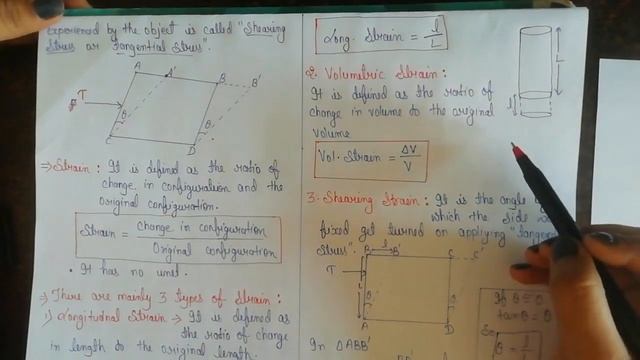 experienced by the object is called "Shearing
Stress or Tangential Stress".
A A' B B'
F T
θ θ
C D
⇒ Strain: It is defined as the ratio of
change in configuration and the
original configuration.
Strain = change in configuration
Original configuration
• It has no unit.
⇒ There are mainly 3 types of Strain:
1) Longitudnal Strain → It is defined as
the ratio of change
in length to the original length.
Long. Strain = l
L
L
l
2. Volumetric Strain:
It is defined as the ratio of
change in volume to the original
volume
Vol. Strain = ΔV
V
3. Shearing Strain: It is the angle
which the side
fixed get turned on applying "tangen
Stress".
B l B' C C'
T
L
θ θ
A D
If θ ≅ 0
tan θ = θ
So
θ = l
In Δ ABB'